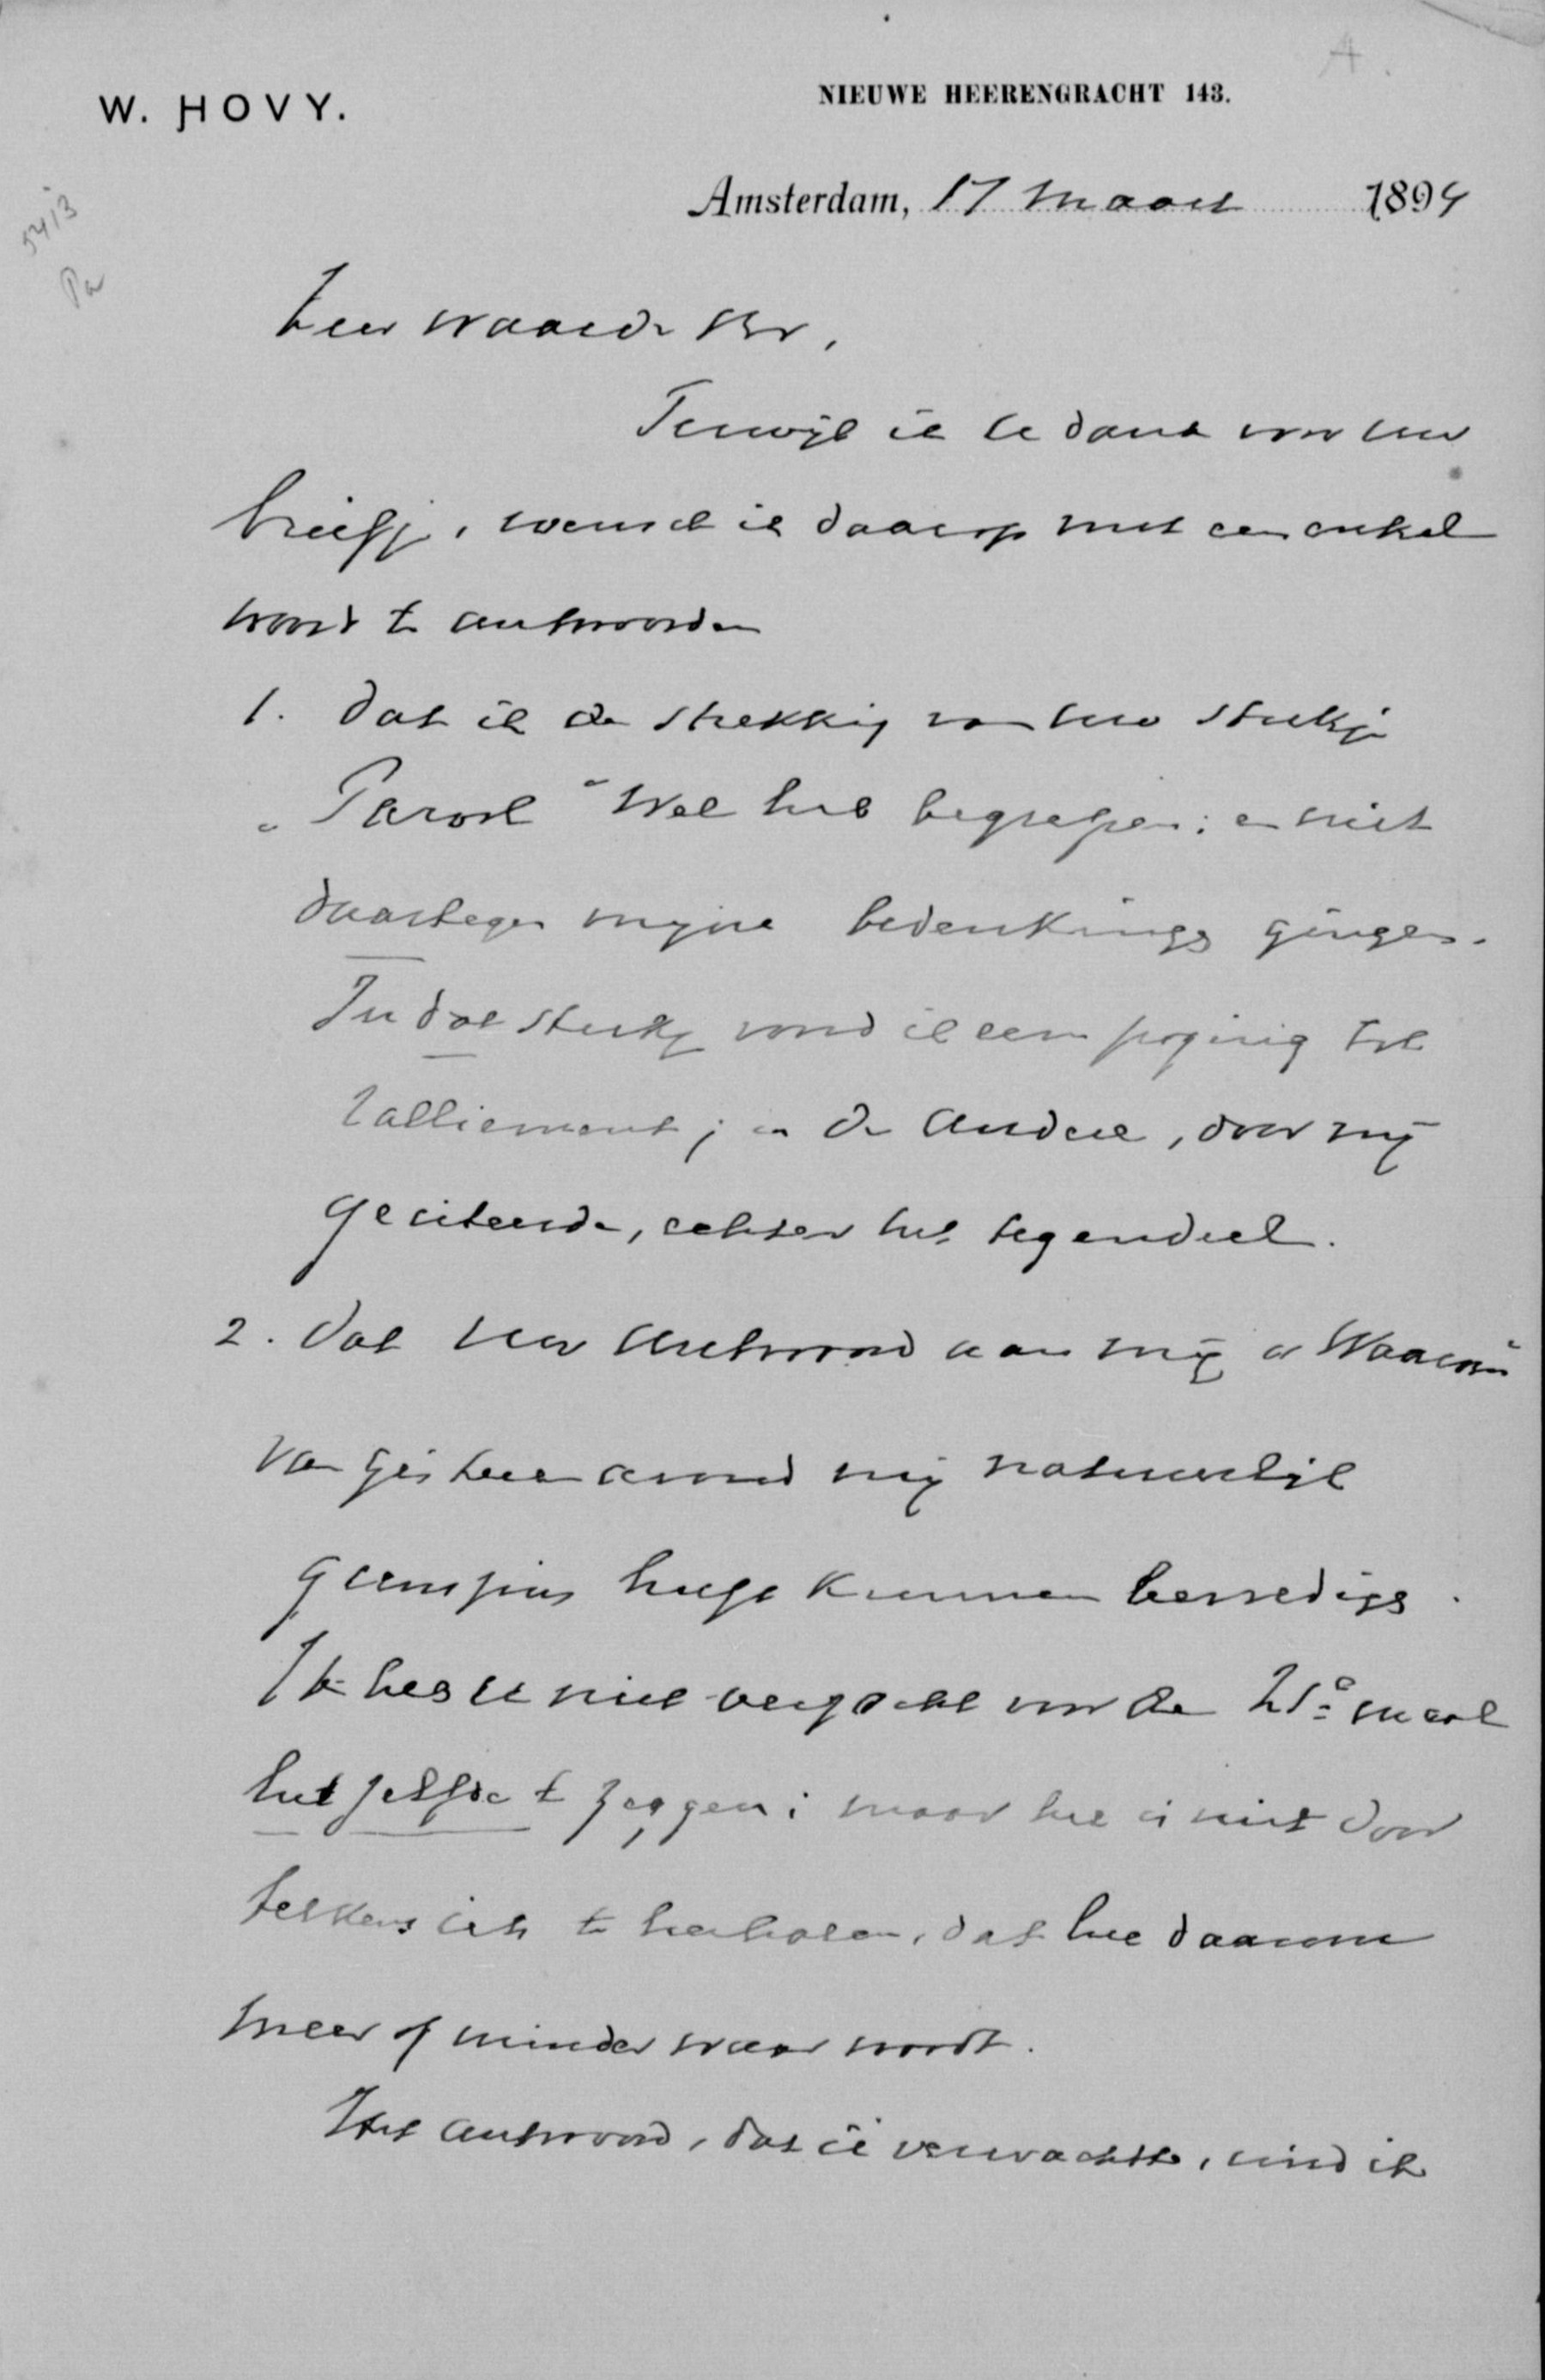 A.
W. HOVY.
NIEUWE HEERENGRACHT 143.
Amsterdam, 17 Maart 1894
5413
Pa
Zeer waarde Br,
Terwijl ik U dank voor uw
briefje, wensch ik daarop met een enkel
woord te antwoorden
1. dat ik de strekking van uw stukje
„Parool" wel heb begrepen; en niet
daartegen mijne bedenkingen gingen.
In dat stukje vond ik een poging tot
ralliement; in de andere, door mij
geciteerde, echter het tegendeel.
2. dat uw antwoord aan mij
van gisteren avond mij natuurlijk
geenszins heeft kunnen bevredigen.
Ik heb U niet verzocht voor de 2de maal
hetzelfde te zeggen; maar het is niet door
telkens iets te herhalen, dat het daarom
meer of minder waar wordt.
Het antwoord, dat ik verwachtte, vind ik